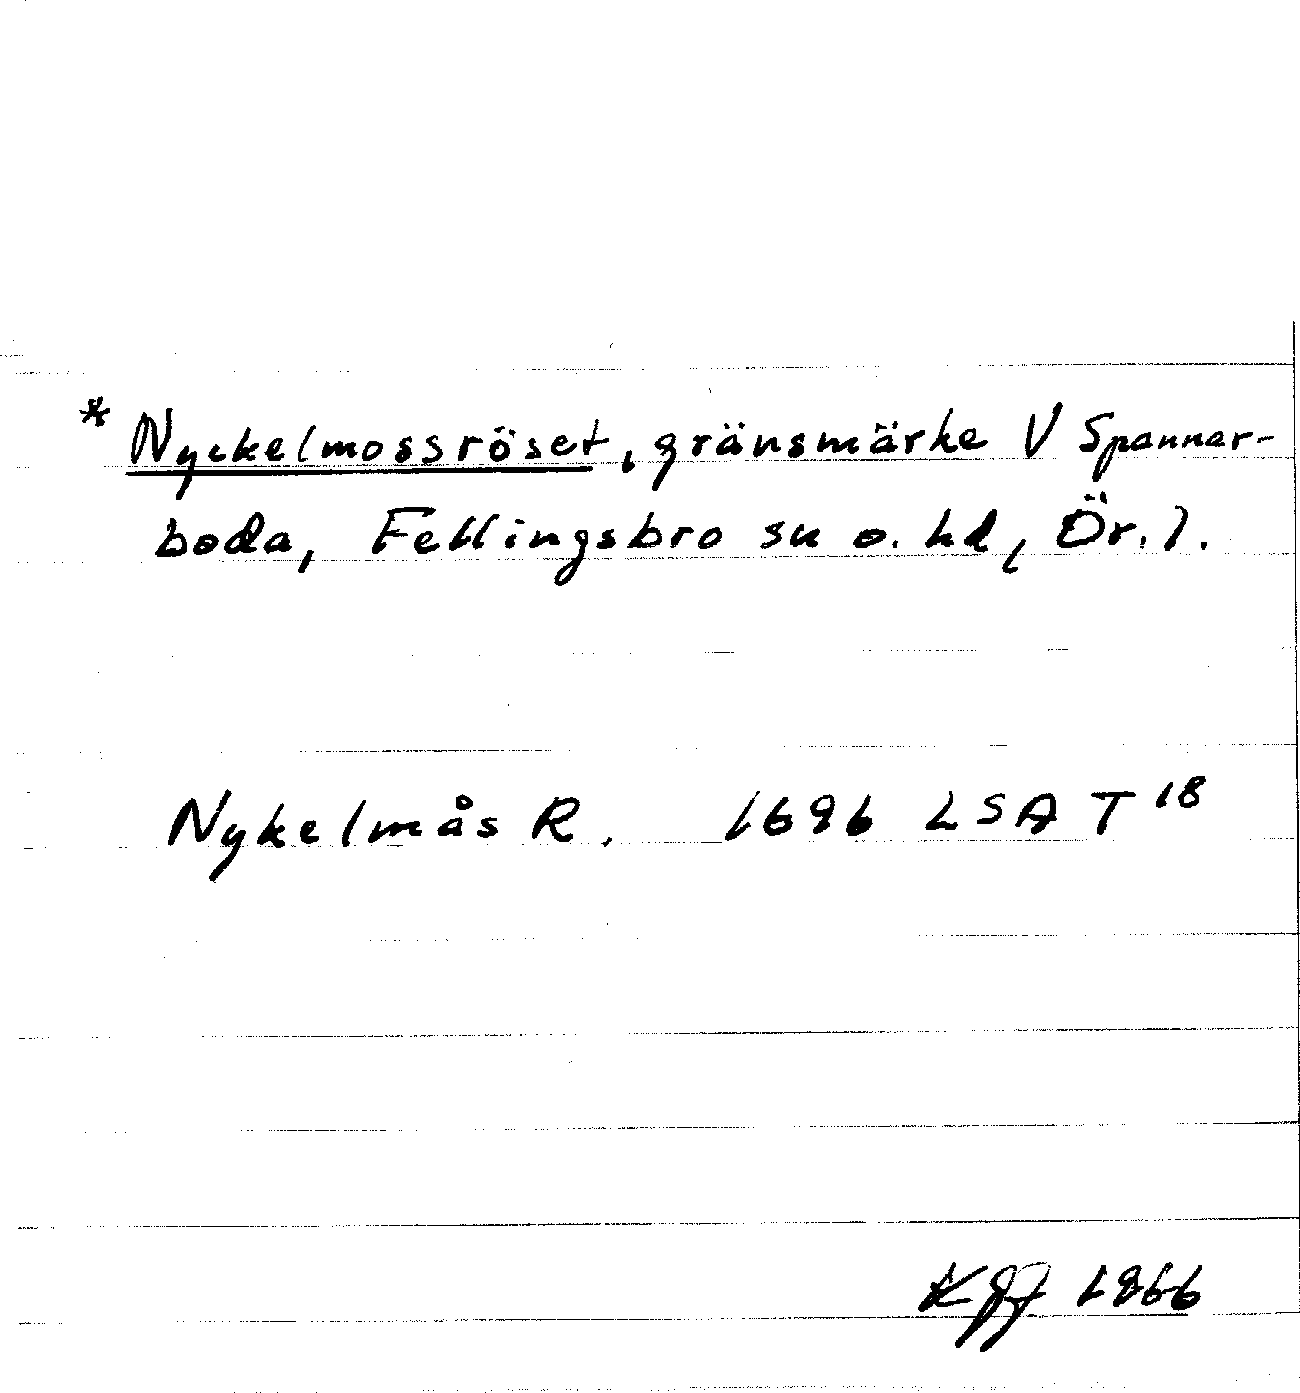 * Nyckelmossröset, gränsmärke V Spannar-
boda, Fellingsbro sn o. hd, Ör. l.
Nykelmås R. 1696 LSA T 18
1966